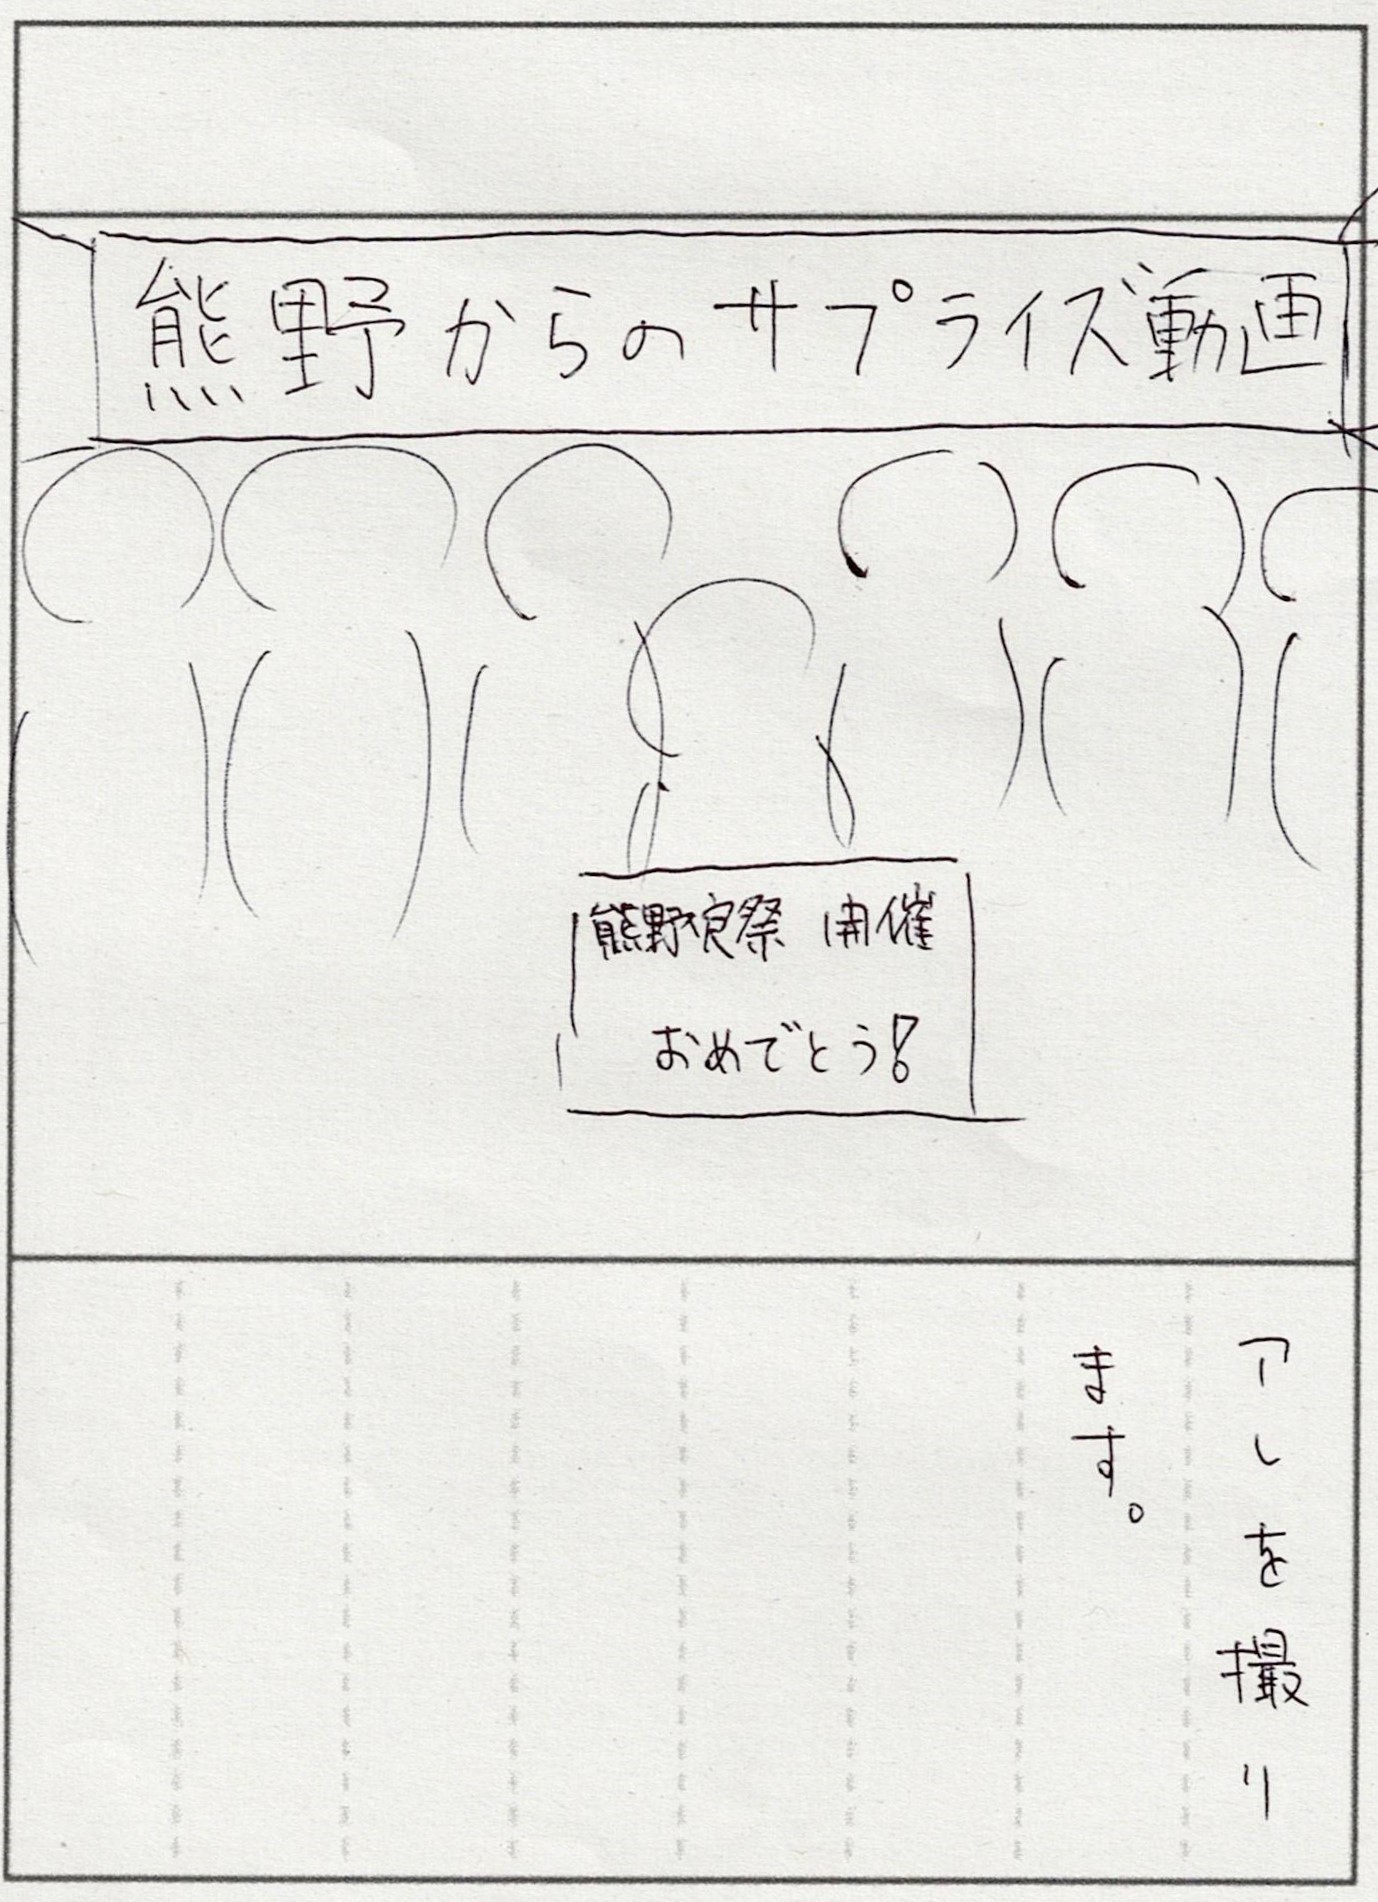 熊野からのサプライズ動画
熊野祭 開催
おめでとう!
アレを撮り
ます。